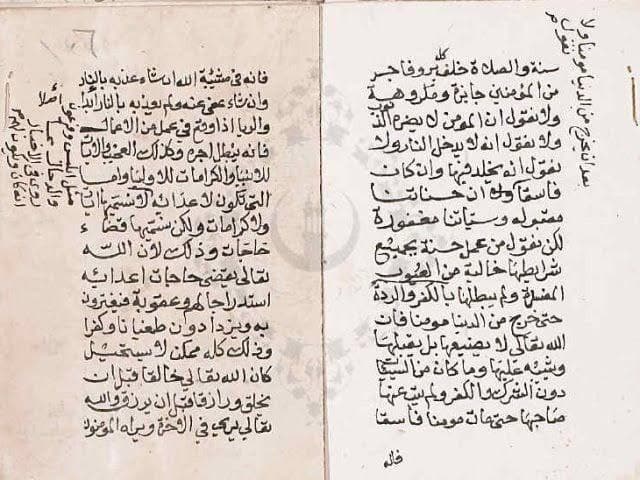 سنة والصلاة خلف كل بر وفاجر
من المؤمنين جايزة ومكروهة
ولا نقول ان المومن لا يضره الذنوب
ولا نقول انه لا يدخل النار ولا
نقول انه يخلد فيها وان كان
فاسقا ولا ان حسناتنا
مقبوله وسياتنا مغفورة
لكن نقول من عمل حسنة بجميع
شرايطها خالية من العيوب
المفسدة ولم يبطلها بالكفر والردة
حتى خرج من الدنيا مومنا فان
الله تعالى لا يضيعها بل يقبلها
ويثيبه عليها وما كان من السيات
دون الشرك والكفر ولم يتب عنها
صاحبها حتى مات مومنا فاسقا
فانه
بعد ان يخرج من الدنيا مومنا ولا
نقول
فانه في مشية الله ان شاء عذبه بالنار
وان شاء عفى عنه ولم يعذبه بالنار ابدا
والريا اذا وقع في عمل من الاعمال
فانه يبطل اجره وكذلك العجب والايات
للانبيا والكرامات للاوليا واما
التي تكون لاعدائه لا نسميها ايات
ولا كرامات ولكن نسميها قضاء
حاجات وذلك لان الله
تعالى يقضي حاجات اعدائه
استدراجا لهم وعقوبة فيغترون
به ويزدادون طغيانا وكفرا
وذلك كله ممكن لا يستحيل
كان الله تعالى خالقا قبل ان
يخلق ورازقا قبل ان يرزق والله
تعالى يرى في الاخرة ويراه المومنون
مثل ابليس وفرعون
والدجال مما
روى في الاخبار
انه كان ويكون لهم